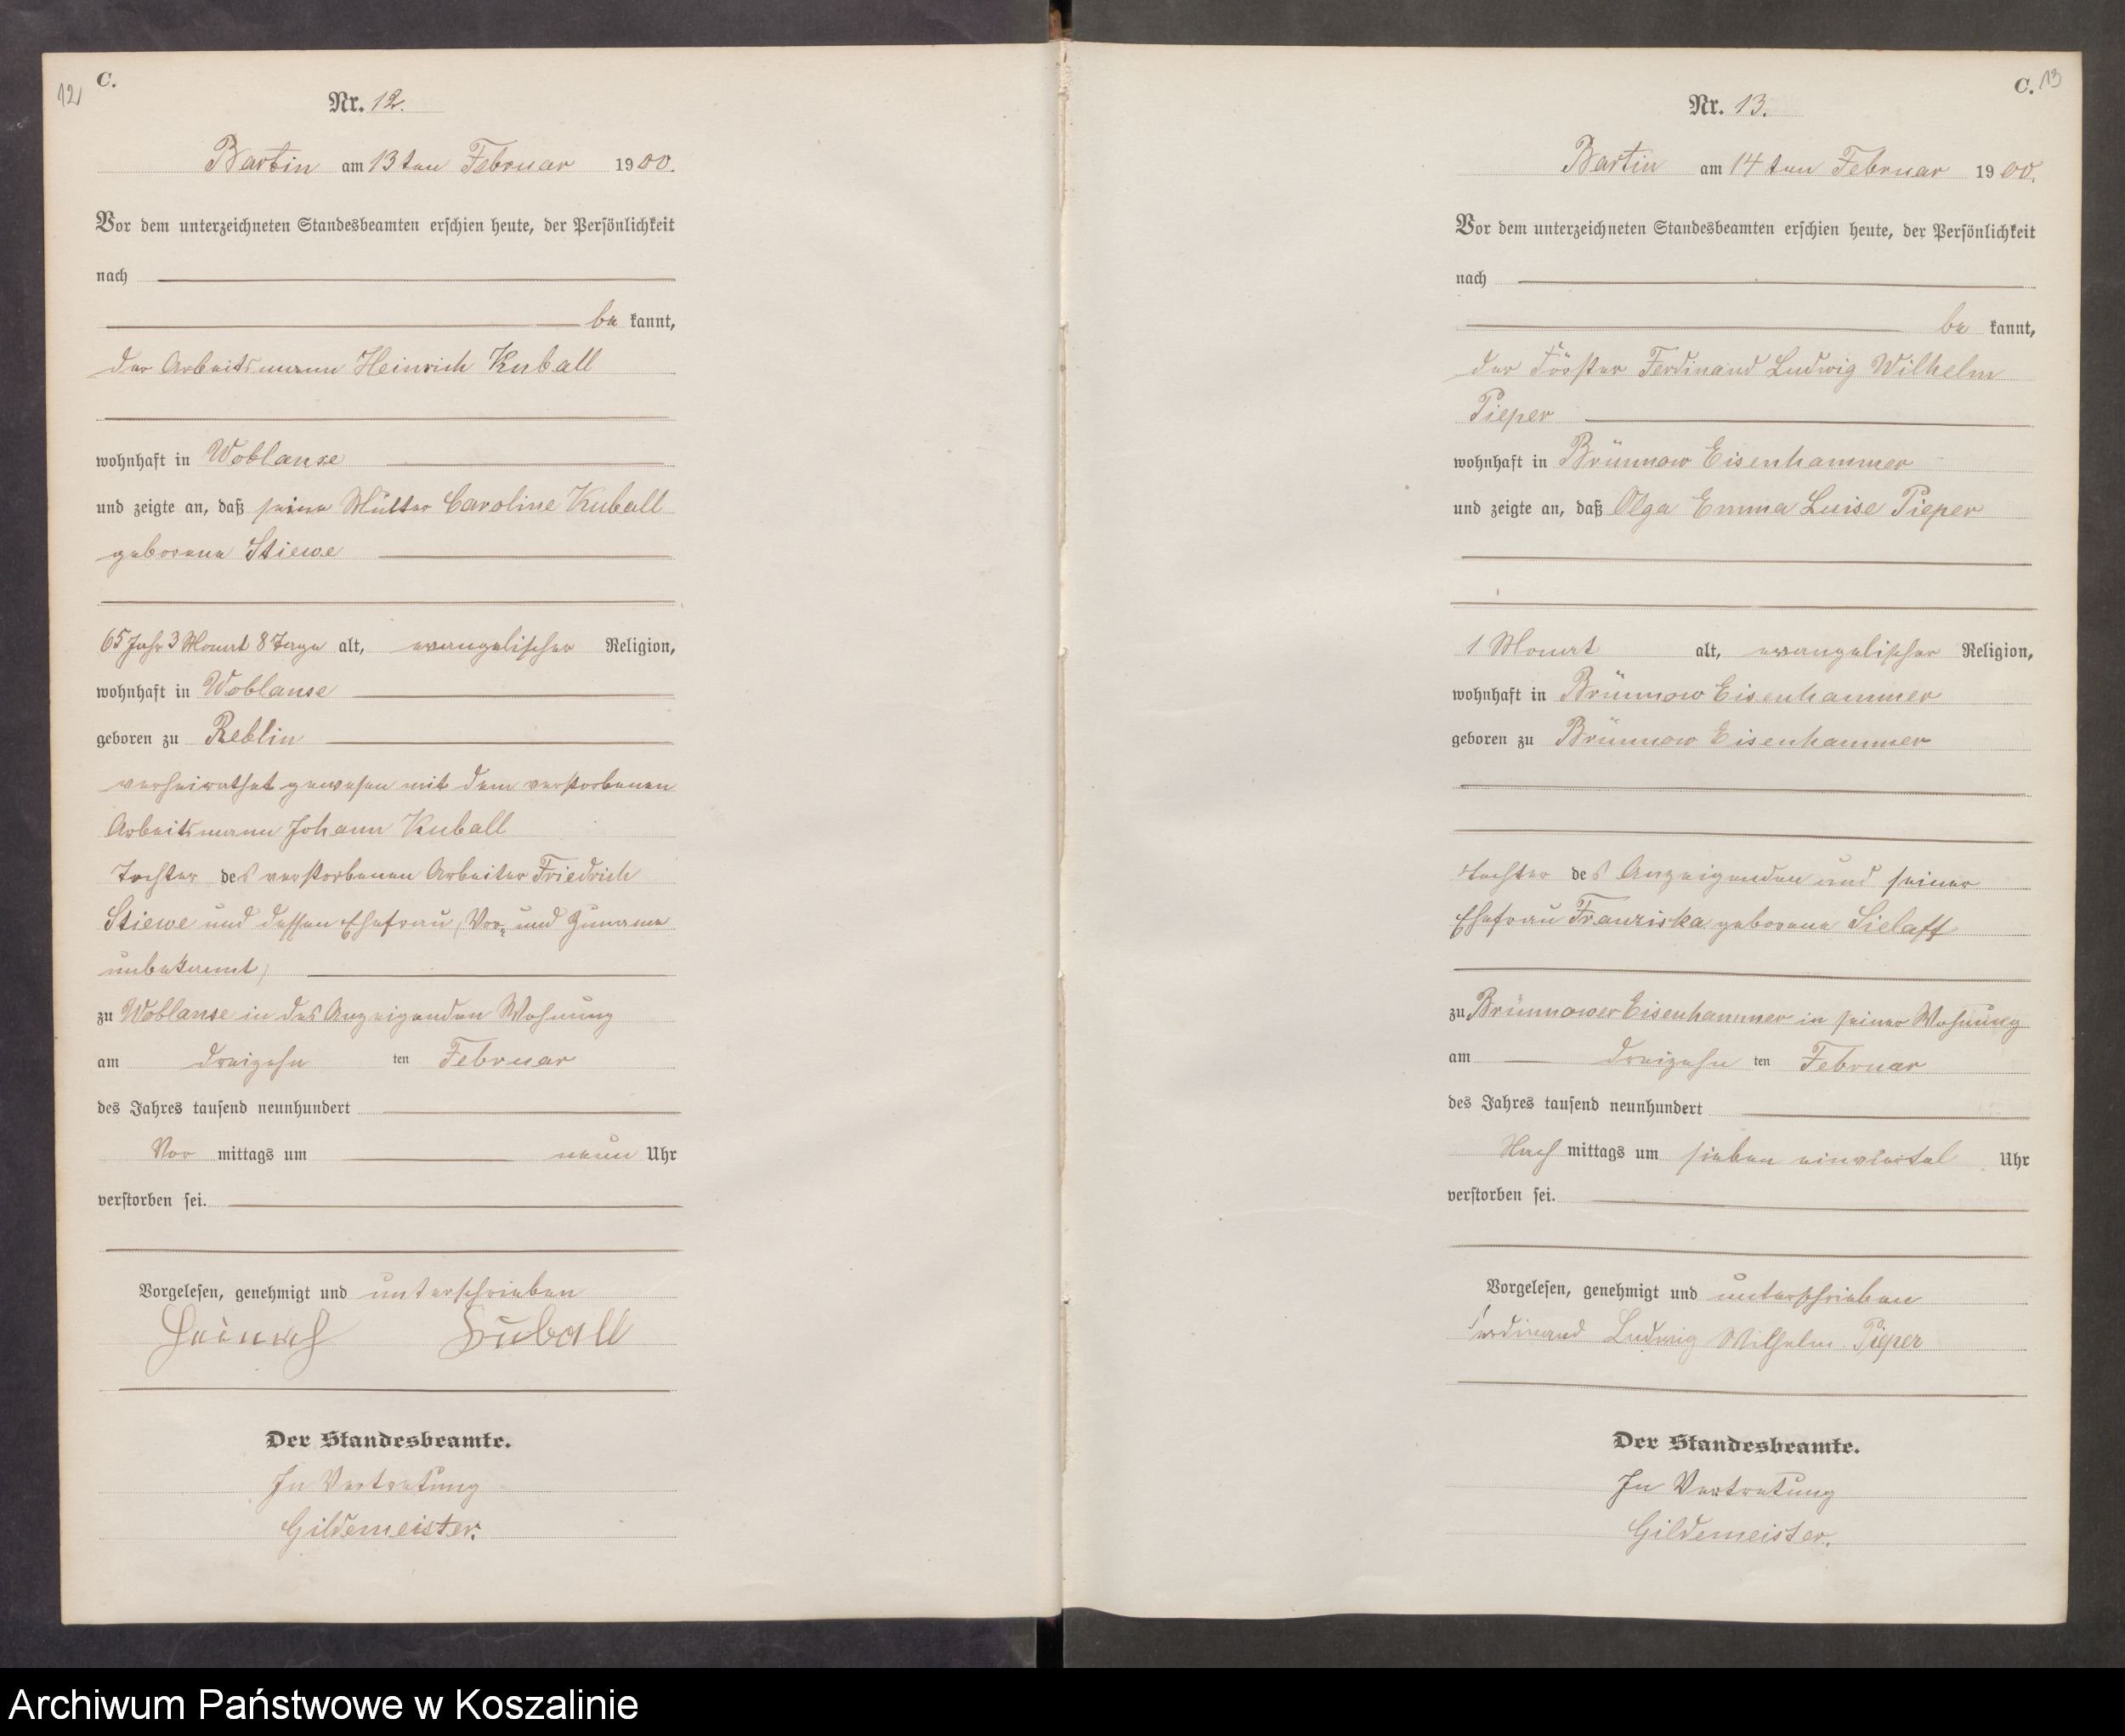 12
C.
Nr. 12.
Bartin am 13ten Februar 1900.
Vor dem unterzeichneten Standesbeamten erschien heute, der Persönlichkeit
nach
be kannt,
der Arbeitsmann Heinrich Kuball
wohnhaft in Woblanse
und zeigte an, daß seine Mutter Caroline Kuball
geborene Stiewe
65 Jahr 3 Monat 8 Tage alt, evangelischer Religion,
wohnhaft in Woblanse
geboren zu Reblin
verheirathet gewesen mit dem verstorbenen
Arbeitsmann Johann Kuball
Tochter des verstorbenen Arbeiter Friedrich
Stiewe und dessen Ehefrau, (Vor- und Zuname
unbekannt)
zu Woblanse in des Anzeigenden Wohnung
am dreizehn ten Februar
des Jahres tausend neunhundert
Vor mittags um neun Uhr
verstorben sei.
Vorgelesen, genehmigt und unterschrieben
Heinrich Kuball
Der Standesbeamte.
In Vertretung
Gildemeister.
C. 13
Nr. 13.
Bartin am 14ten Februar 1900.
Vor dem unterzeichneten Standesbeamten erschien heute, der Persönlichkeit
nach
be kannt,
der Förster Ferdinand Ludwig Wilhelm
Pieper
wohnhaft in Brünnow Eisenhammer
und zeigte an, daß Olga Emma Luise Pieper
1 Monat alt, evangelischer Religion,
wohnhaft in Brünnow Eisenhammer
geboren zu Brünnow Eisenhammer
Tochter des Anzeigenden und seiner
Ehefrau Franziska geborene Sielaff
zu Brünnower Eisenhammer in seiner Wohnung
am dreizehn ten Februar
des Jahres tausend neunhundert
Nach mittags um sieben einviertel Uhr
verstorben sei.
Vorgelesen, genehmigt und unterschrieben
Ferdinand Ludwig Wilhelm Pieper
Der Standesbeamte.
In Vertretung
Gildemeister.
Archiwum Państwowe w Koszalinie